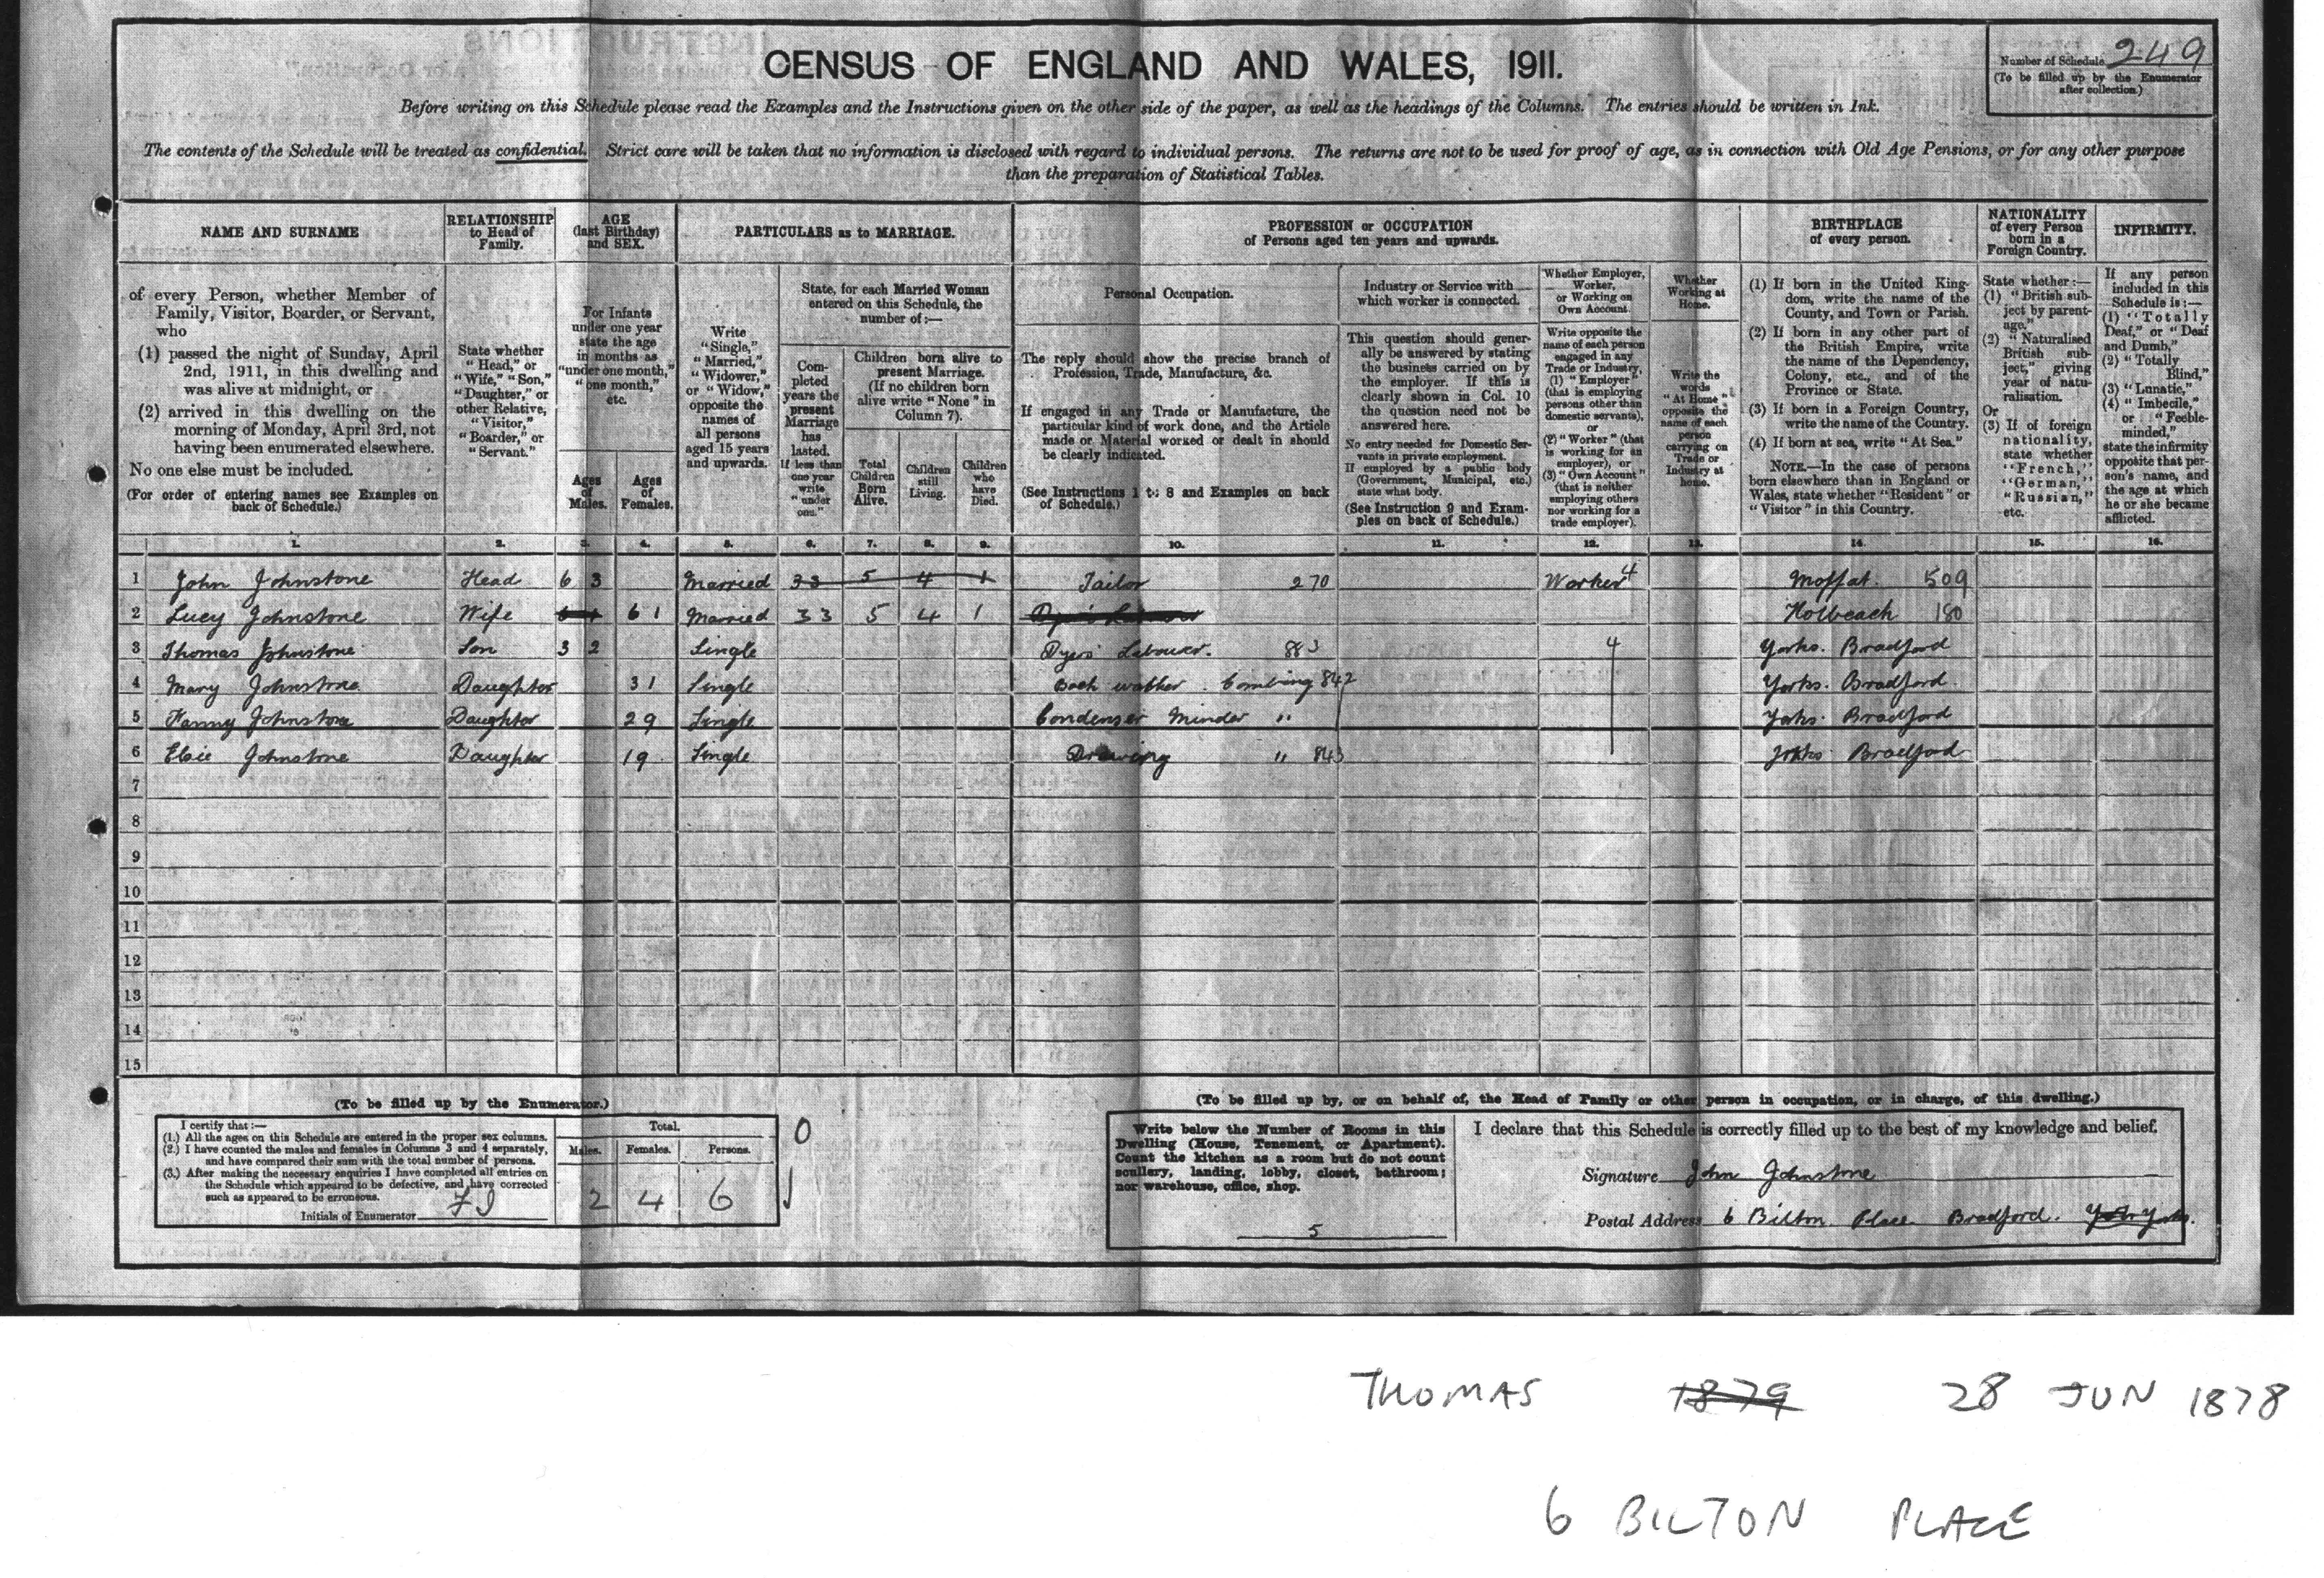 CENSUS OF ENGLAND AND WALES, 1911.
Number of Schedule 249
(To be filled up by the Enumerator after collection.)
Before writing on this Schedule please read the Examples and the Instructions given on the other side of the paper, as well as the headings of the Columns. The entries should be written in Ink.
The contents of the Schedule will be treated as confidential. Strict care will be taken that no information is disclosed with regard to individual persons. The returns are not to be used for proof of age, as in connection with Old Age Pensions, or for any other purpose
than the preparation of Statistical Tables.
NAME AND SURNAME
of every Person, whether Member of
Family, Visitor, Boarder, or Servant,
who
(1) passed the night of Sunday, April
2nd, 1911, in this dwelling and
was alive at midnight, or
(2) arrived in this dwelling on the
morning of Monday, April 3rd, not
having been enumerated elsewhere.
No one else must be included.
(For order of entering names see Examples on
back of Schedule.)
RELATIONSHIP
to Head of
Family.
State whether
"Head," or
"Wife," "Son,"
"Daughter," or
other Relative,
"Visitor,"
"Boarder," or
"Servant."
AGE
(last Birthday)
and SEX.
For Infants
under one year
state the age
in months as
"under one month,"
"one month,"
etc.
Ages
of
Males.
Ages
of
Females.
PARTICULARS as to MARRIAGE.
Write
"Single,"
"Married,"
"Widower,"
or "Widow,"
opposite the
names of
all persons
aged 15 years
and upwards.
State, for each Married Woman
entered on this Schedule, the
number of:—
Com-
pleted
years the
present
Marriage
has
lasted.
If less than
one year
write
"under
one."
Children born alive to
present Marriage.
(If no children born
alive write "None" in
Column 7).
Total
Children
Born
Alive.
Children
still
Living.
Children
who
have
Died.
PROFESSION or OCCUPATION
of Persons aged ten years and upwards.
Personal Occupation.
The reply should show the precise branch of
Profession, Trade, Manufacture, &c.
If engaged in any Trade or Manufacture, the
particular kind of work done, and the Article
made or Material worked or dealt in should
be clearly indicated.
(See Instructions 1 to 8 and Examples on back
of Schedule.)
Industry or Service with
which worker is connected.
This question should gener-
ally be answered by stating
the business carried on by
the employer. If this is
clearly shown in Col. 10
the question need not be
answered here.
No entry needed for Domestic Ser-
vants in private employment.
If employed by a public body
(Government, Municipal, etc.)
state what body.
(See Instruction 9 and Exam-
ples on back of Schedule.)
Whether Employer,
Worker,
or Working on
Own Account.
Write opposite the
name of each person
engaged in any
Trade or Industry,
(1) "Employer"
(that is employing
persons other than
domestic servants),
or
(2) "Worker" (that
is working for an
employer), or
(3) "Own Account"
(that is neither
employing others
nor working for a
trade employer).
Whether
Working at
Home.
Write the
words
"At Home"
opposite the
name of each
person
carrying on
Trade or
Industry at
home.
BIRTHPLACE
of every person.
(1) If born in the United King-
dom, write the name of the
County, and Town or Parish.
(2) If born in any other part of
the British Empire, write
the name of the Dependency,
Colony, etc., and of the
Province or State.
(3) If born in a Foreign Country,
write the name of the Country.
(4) If born at sea, write "At Sea."
NOTE.—In the case of persons
born elsewhere than in England or
Wales, state whether "Resident" or
"Visitor" in this Country.
NATIONALITY
of every Person
born in a
Foreign Country.
State whether:—
(1) "British sub-
ject by parent-
age."
(2) "Naturalised
British sub-
ject," giving
year of natu-
ralisation.
Or
(3) If of foreign
nationality,
state whether
"French,"
"German,"
"Russian,"
etc.
INFIRMITY.
If any person
included in this
Schedule is:—
(1) "Totally
Deaf," or "Deaf
and Dumb,"
(2) "Totally
Blind,"
(3) "Lunatic,"
(4) "Imbecile,"
or "Feeble-
minded,"
state the infirmity
opposite that per-
son's name, and
the age at which
he or she became
afflicted.
1. 2. 3. 4. 5. 6. 7. 8. 9. 10. 11. 12. 13. 14. 15. 16.
1 John Johnstone Head 63 Married 33 5 4 1 Tailor 270 Worker 4 Moffat. 509
2 Lucy Johnstone Wife 61 Married 33 5 4 1 Holbeach 180
3 Thomas Johnstone Son 32 Single Dyers Labourer. 883 4 Yorks. Bradford
4 Mary Johnstone Daughter 31 Single washer. Combing 842 Yorks. Bradford.
5 Fanny Johnstone Daughter 29 Single Condenser Minder " Yorks. Bradford
6 Elsie Johnstone Daughter 19 Single Drawing " 843 Yorks Bradford
7
8
9
10
11
12
13
14
15
(To be filled up by the Enumerator.)
I certify that:—
(1.) All the ages on this Schedule are entered in the proper sex columns.
(2.) I have counted the males and females in Columns 3 and 4 separately,
and have compared their sum with the total number of persons.
(3.) After making the necessary enquiries I have completed all entries on
the Schedule which appeared to be defective, and have corrected
such as appeared to be erroneous.
Initials of Enumerator
Total.
Males. Females. Persons.
2 4 6
0
(To be filled up by, or on behalf of, the Head of Family or other person in occupation, or in charge, of this dwelling.)
Write below the Number of Rooms in this
Dwelling (House, Tenement, or Apartment).
Count the kitchen as a room but do not count
scullery, landing, lobby, closet, bathroom;
nor warehouse, office, shop.
5
I declare that this Schedule is correctly filled up to the best of my knowledge and belief.
Signature John Johnstone
Postal Address 6 Bilton Place Bradford. Yorks.
THOMAS 1879 28 JUN 1878
6 BILTON PLACE